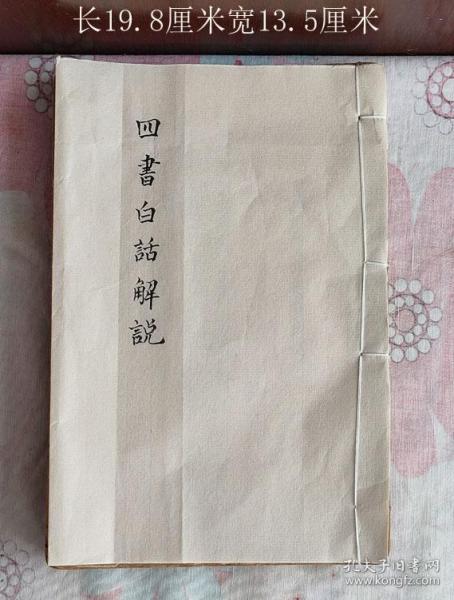 长19.8厘米宽13.5厘米
四書白話解說
孔夫子旧书网
www.kongfz.com